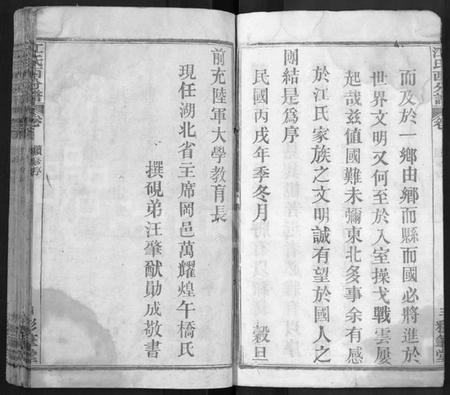 而及於一鄉由鄉而縣而國必將進於
世界文明又何至於入室操戈戰雲屢
起哉茲值國難未彌東北多事余有感
於江氏家族之文明誠有望於國人之
團結是為序
民國丙戌年季冬月 穀旦
前充陸軍大學教育長
現任湖北省主席岡邑萬耀煌午橋氏
撰硯弟汪肇猷勛成敬書